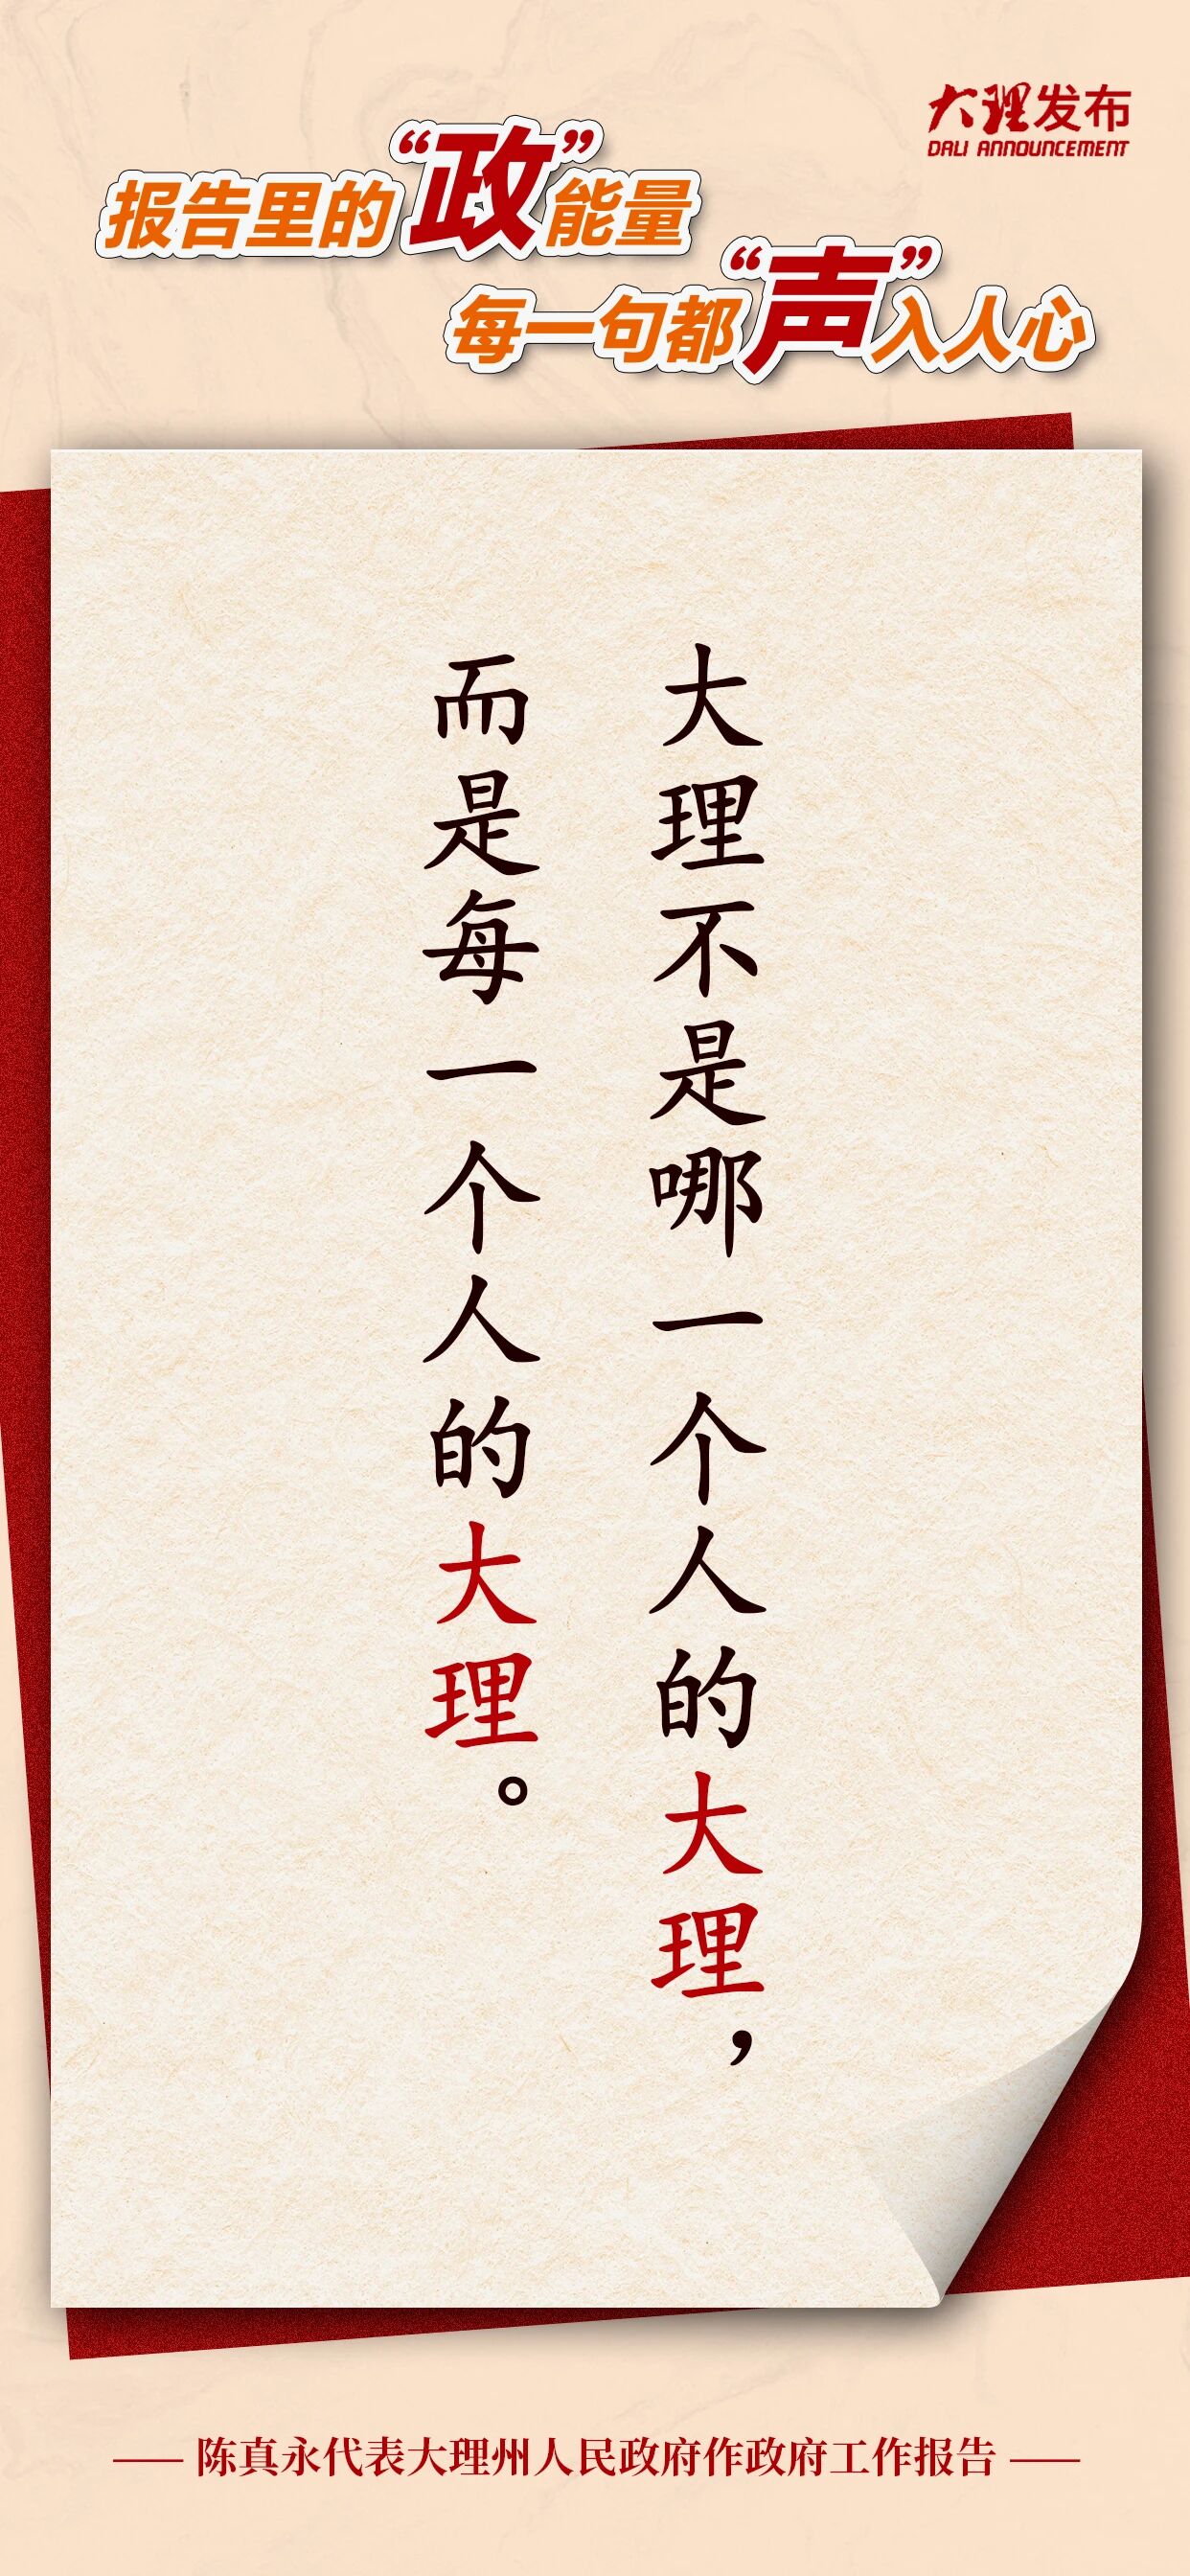 大理发布
DALI ANNOUNCEMENT
报告里的“政”能量
每一句都“声”入人心
大理不是哪一个人的大理，
而是每一个人的大理。
陈真永代表大理州人民政府作政府工作报告